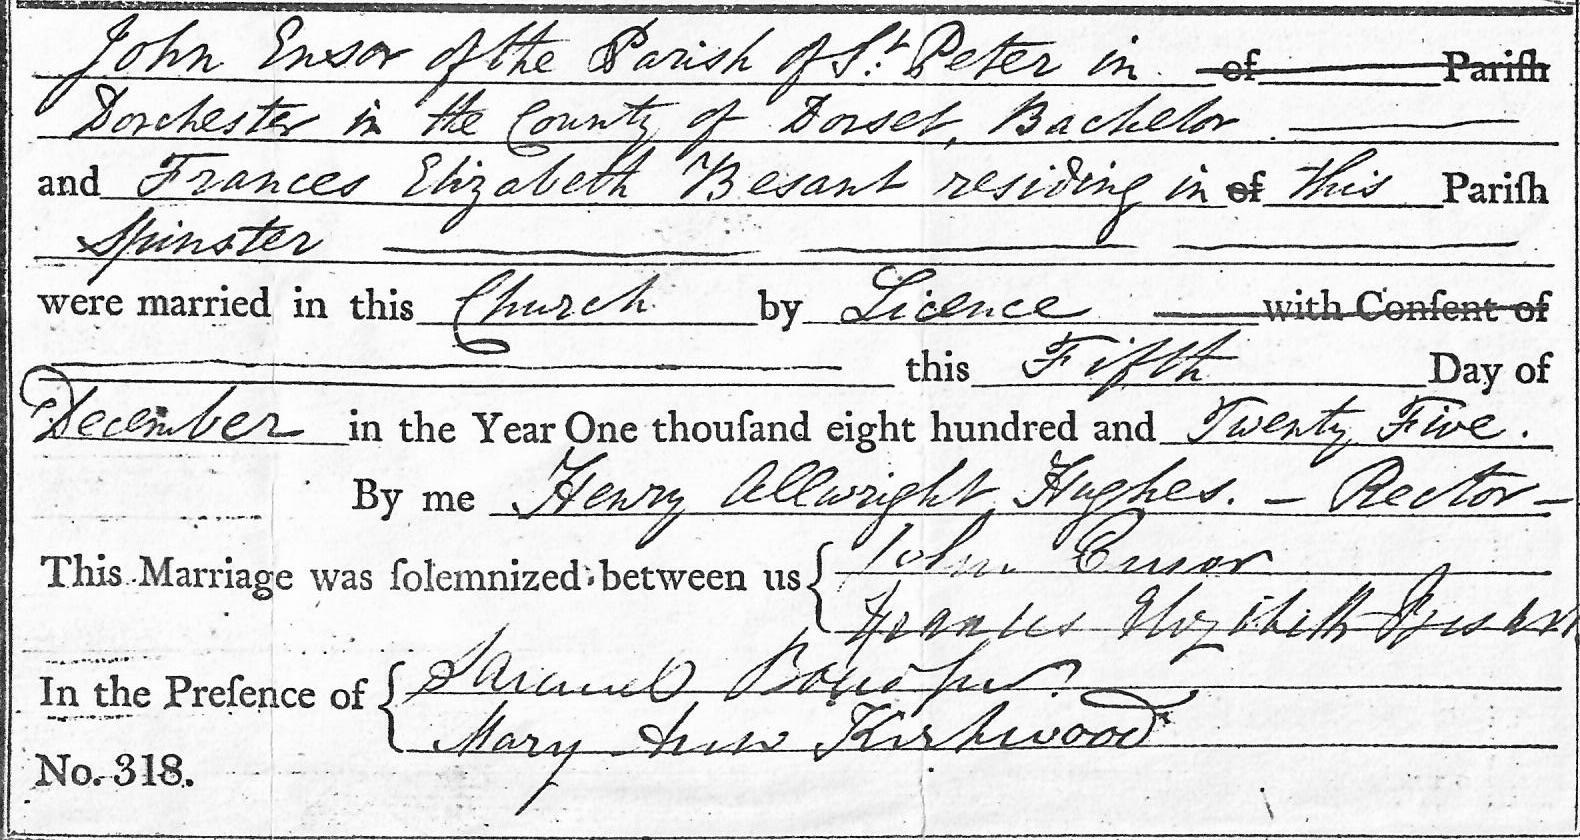 John Ensor of the Parish of St. Peter in of Pariſh
Dorchester in the County of Dorset, Bachelor
and Frances Elizabeth Besant residing in of this Pariſh
Spinster
were married in this Church by Licence with Conſent of
this Fifth Day of
December in the Year One thouſand eight hundred and Twenty Five.
By me Henry Allwright Hughes. – Rector –
This Marriage was ſolemnized between us { John Ensor
Frances Elizabeth Besant
In the Preſence of { Samuel
Mary Ann Kirkwood
No. 318.